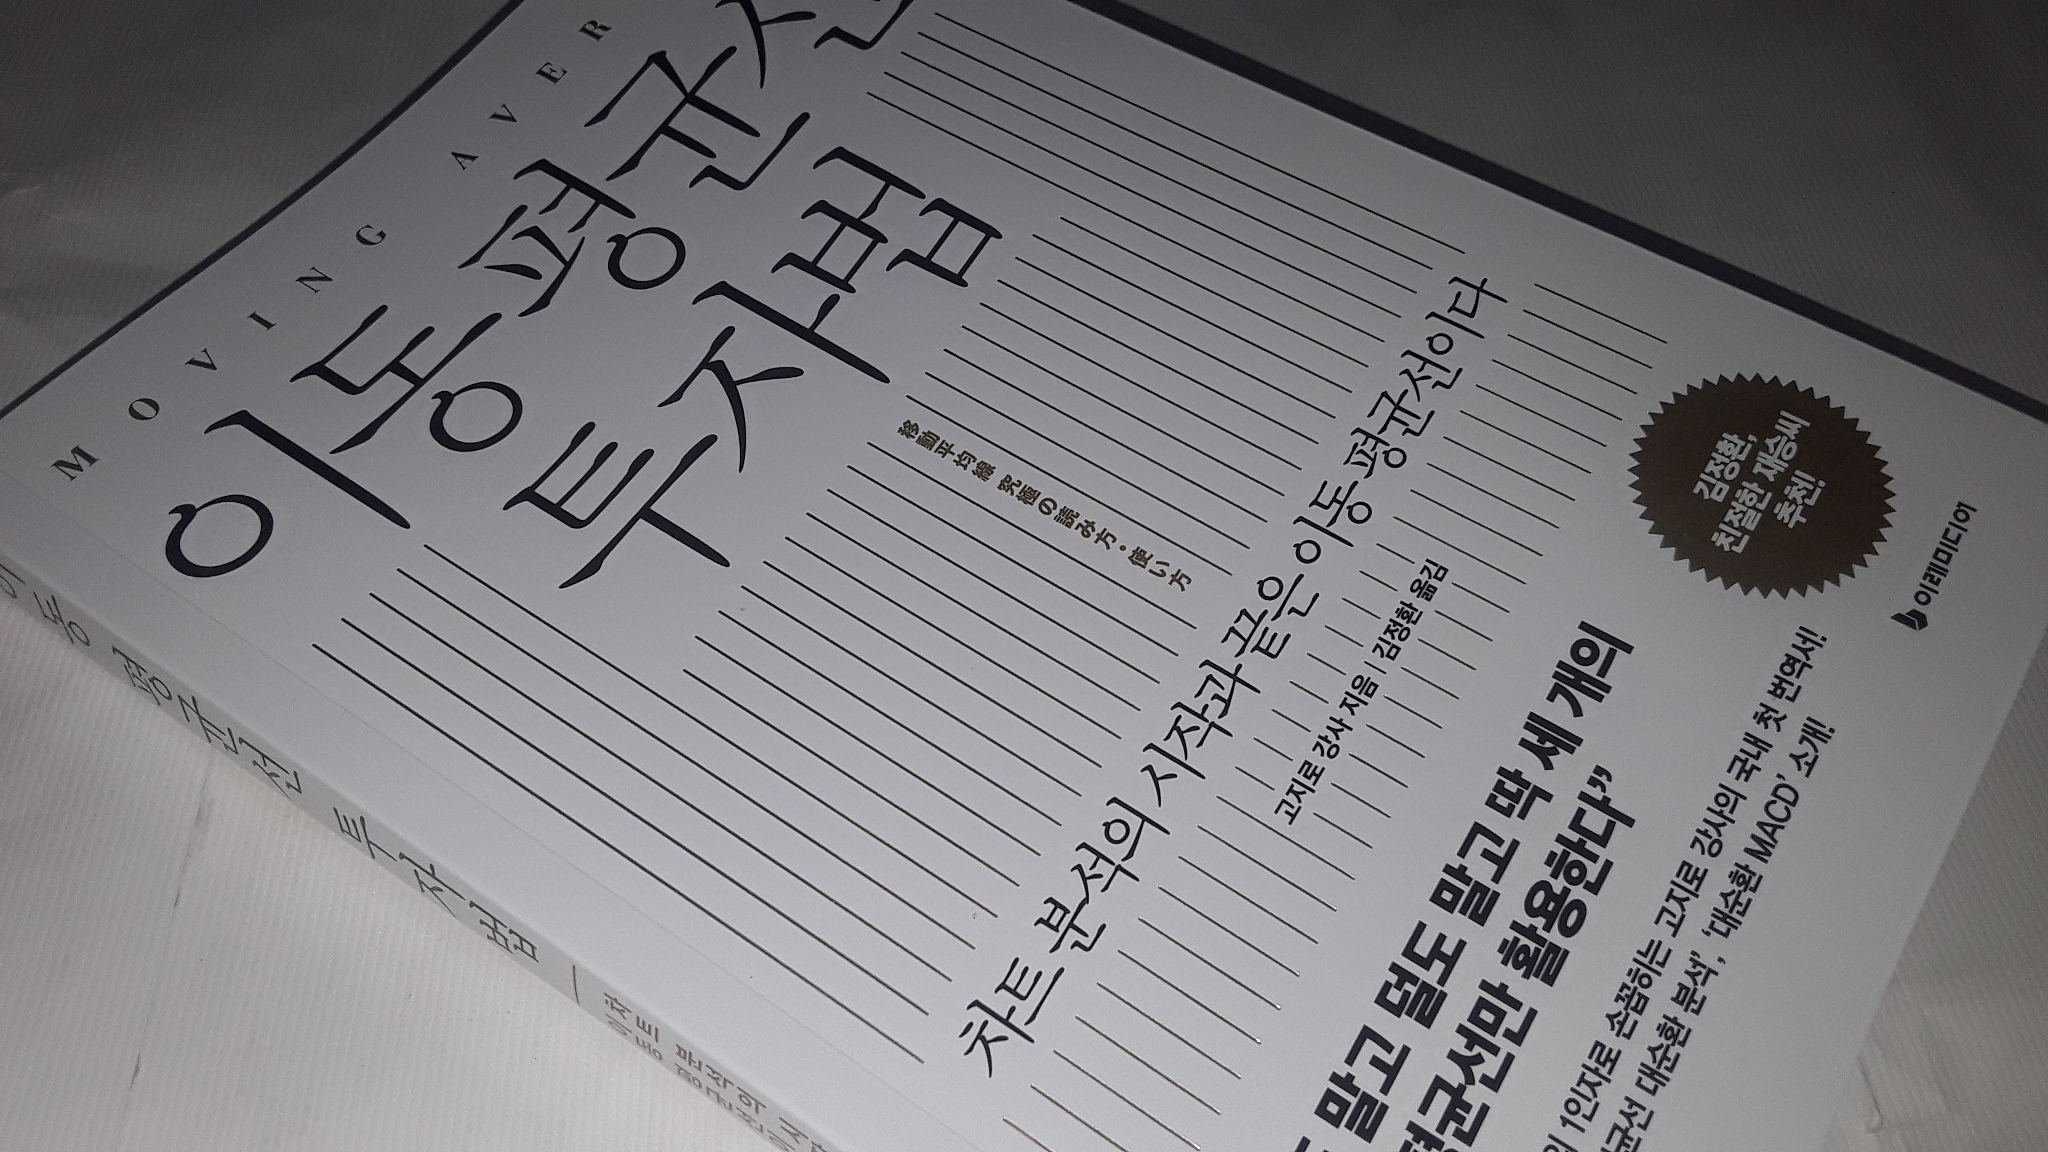 MOVING AVER
이동평균선
투자법
移動平均線 究極の読み方・使い方
차트 분석의 시작과 끝은 이동 평균선이다
고지로 강사 지음 | 김정환 옮김
말고 덜도 말고 딱 세 개의
평균선만 활용한다”
1인자로 손꼽히는 고지로 강사의 국내 첫 번역서!
대순환 분석’, ‘대순환 MACD’ 소개!
김정환,
친절한 재승씨
추천!
이레미디어
이동평균선 투자법
차트 분석의 시
이동 평균선이